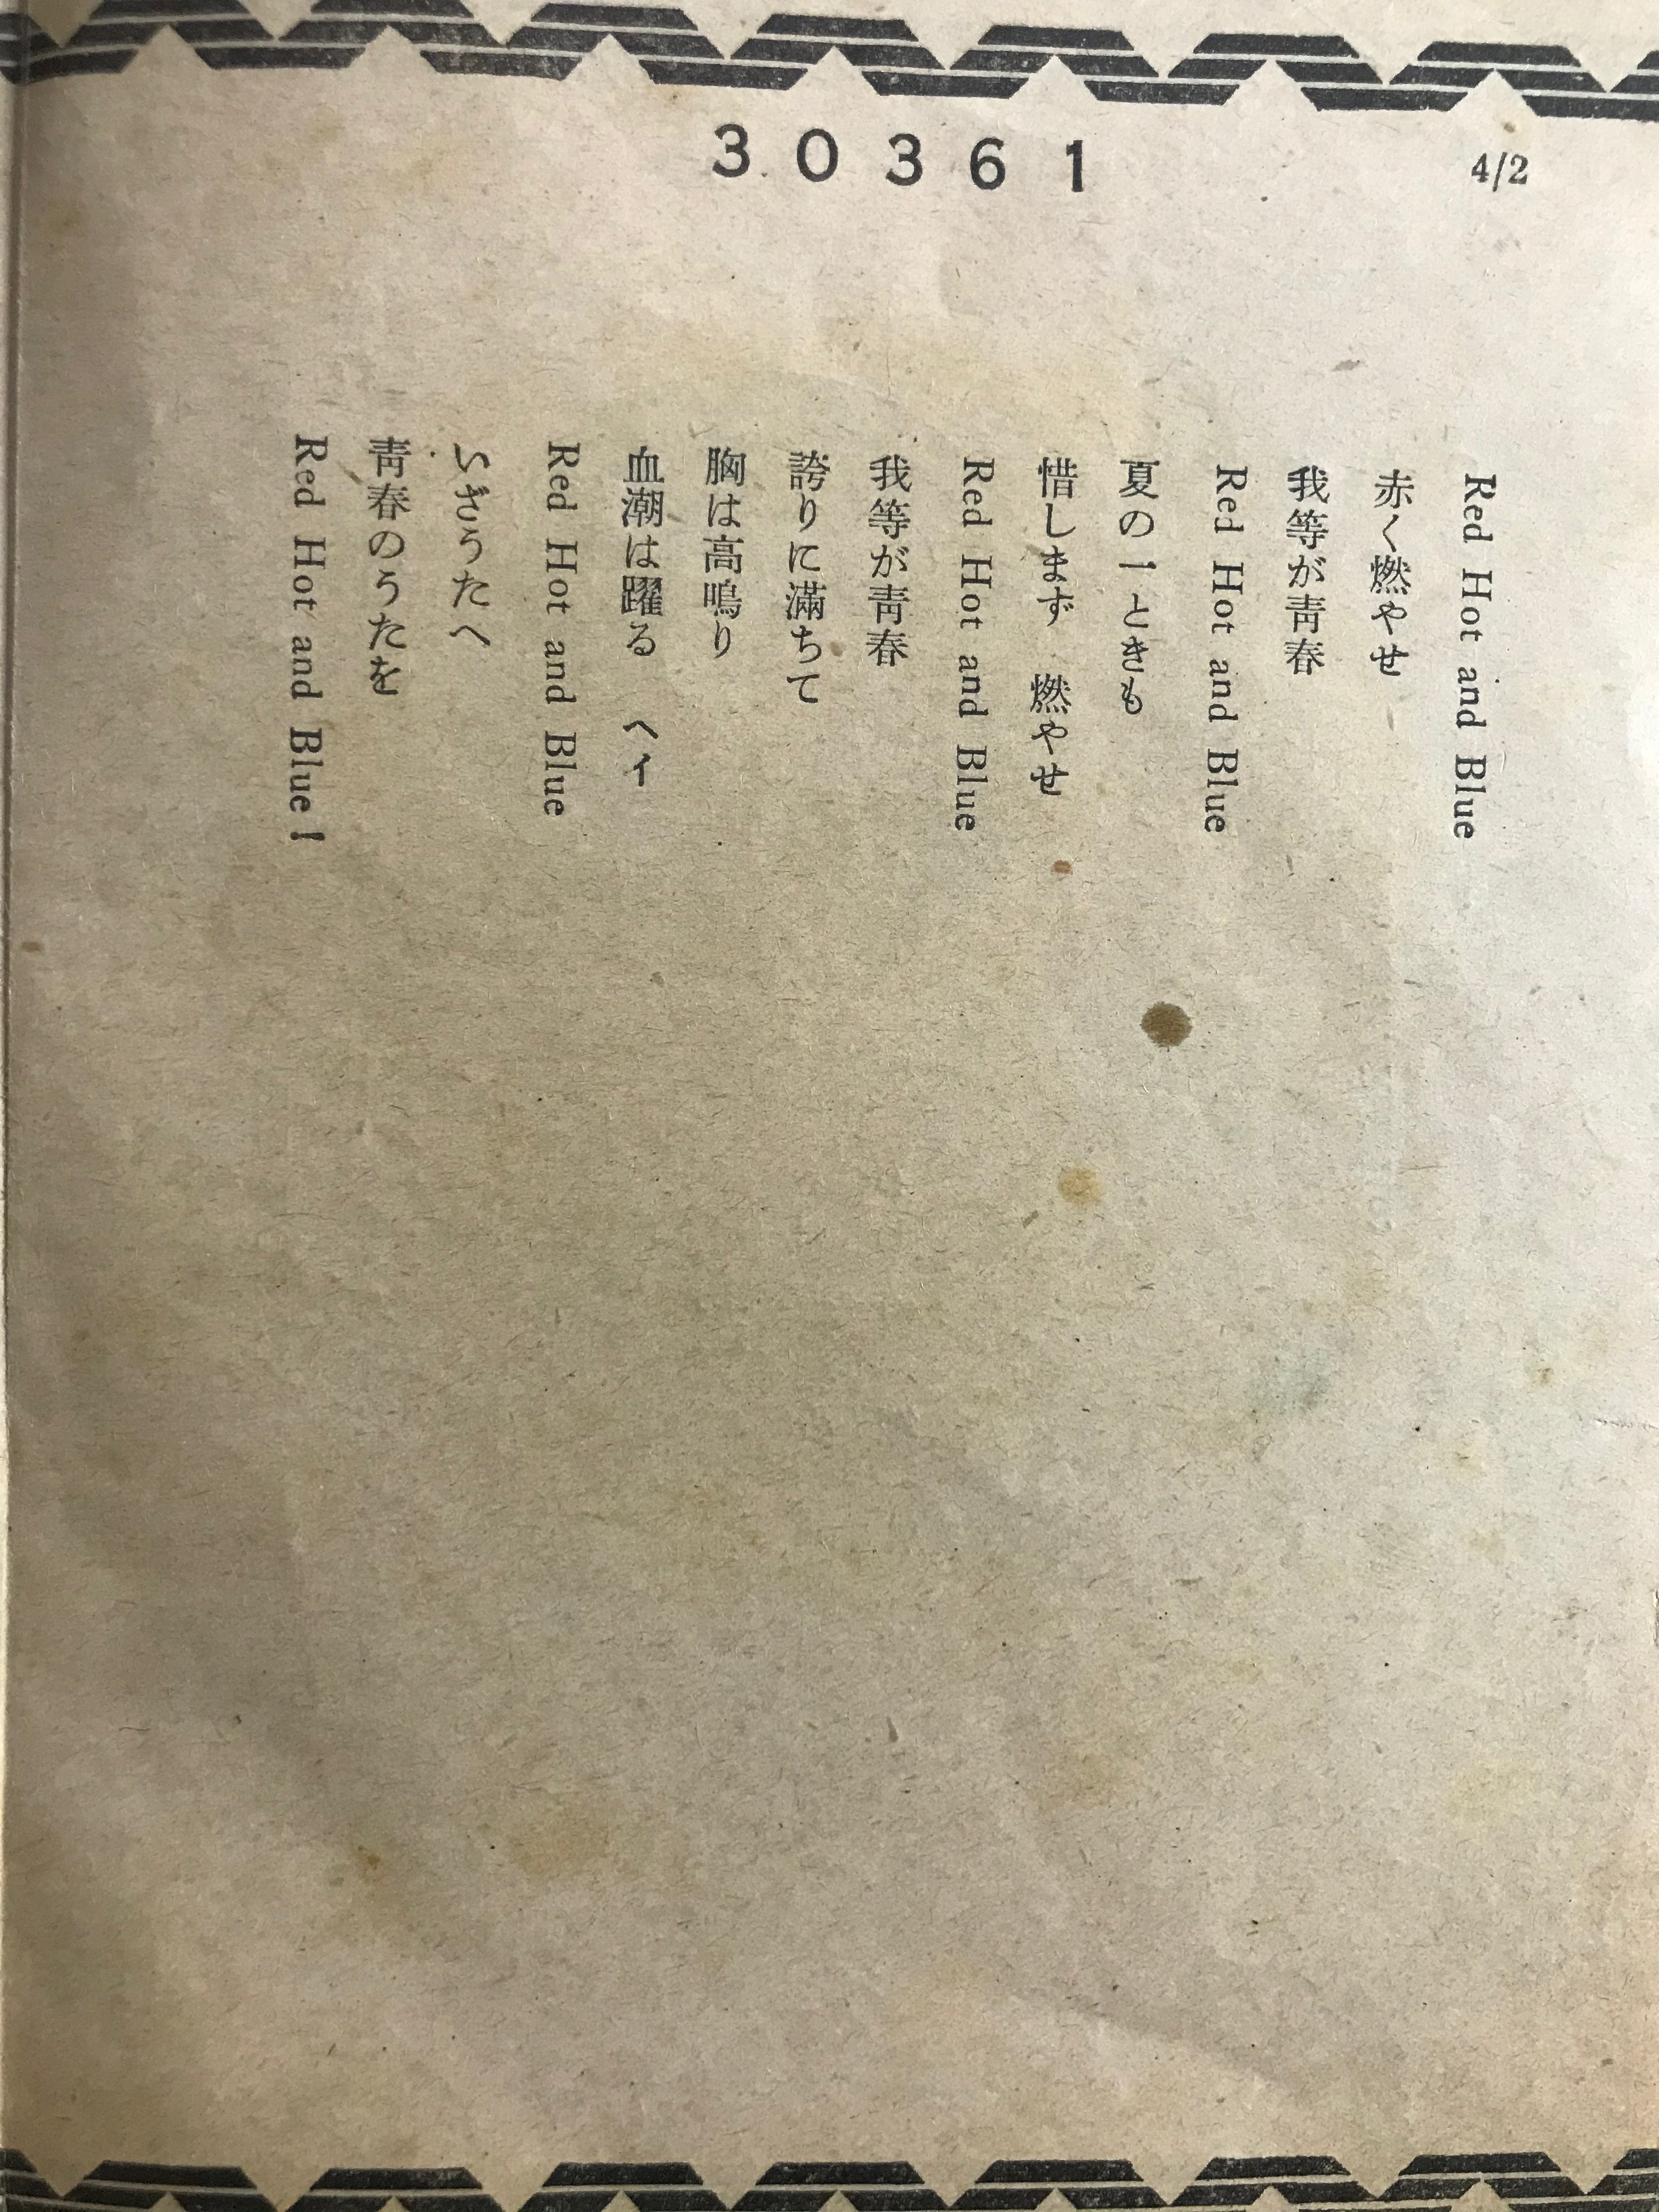 30361
4/2
Red Hot and Blue
赤く燃やせ
我等が靑春
Red Hot and Blue
夏の一ときも
惜しまず　燃やせ
Red Hot and Blue
我等が靑春
誇りに滿ちて
胸は高鳴り
血潮は躍る　ヘイ
Red Hot and Blue
いざうたへ
靑春のうたを
Red Hot and Blue!